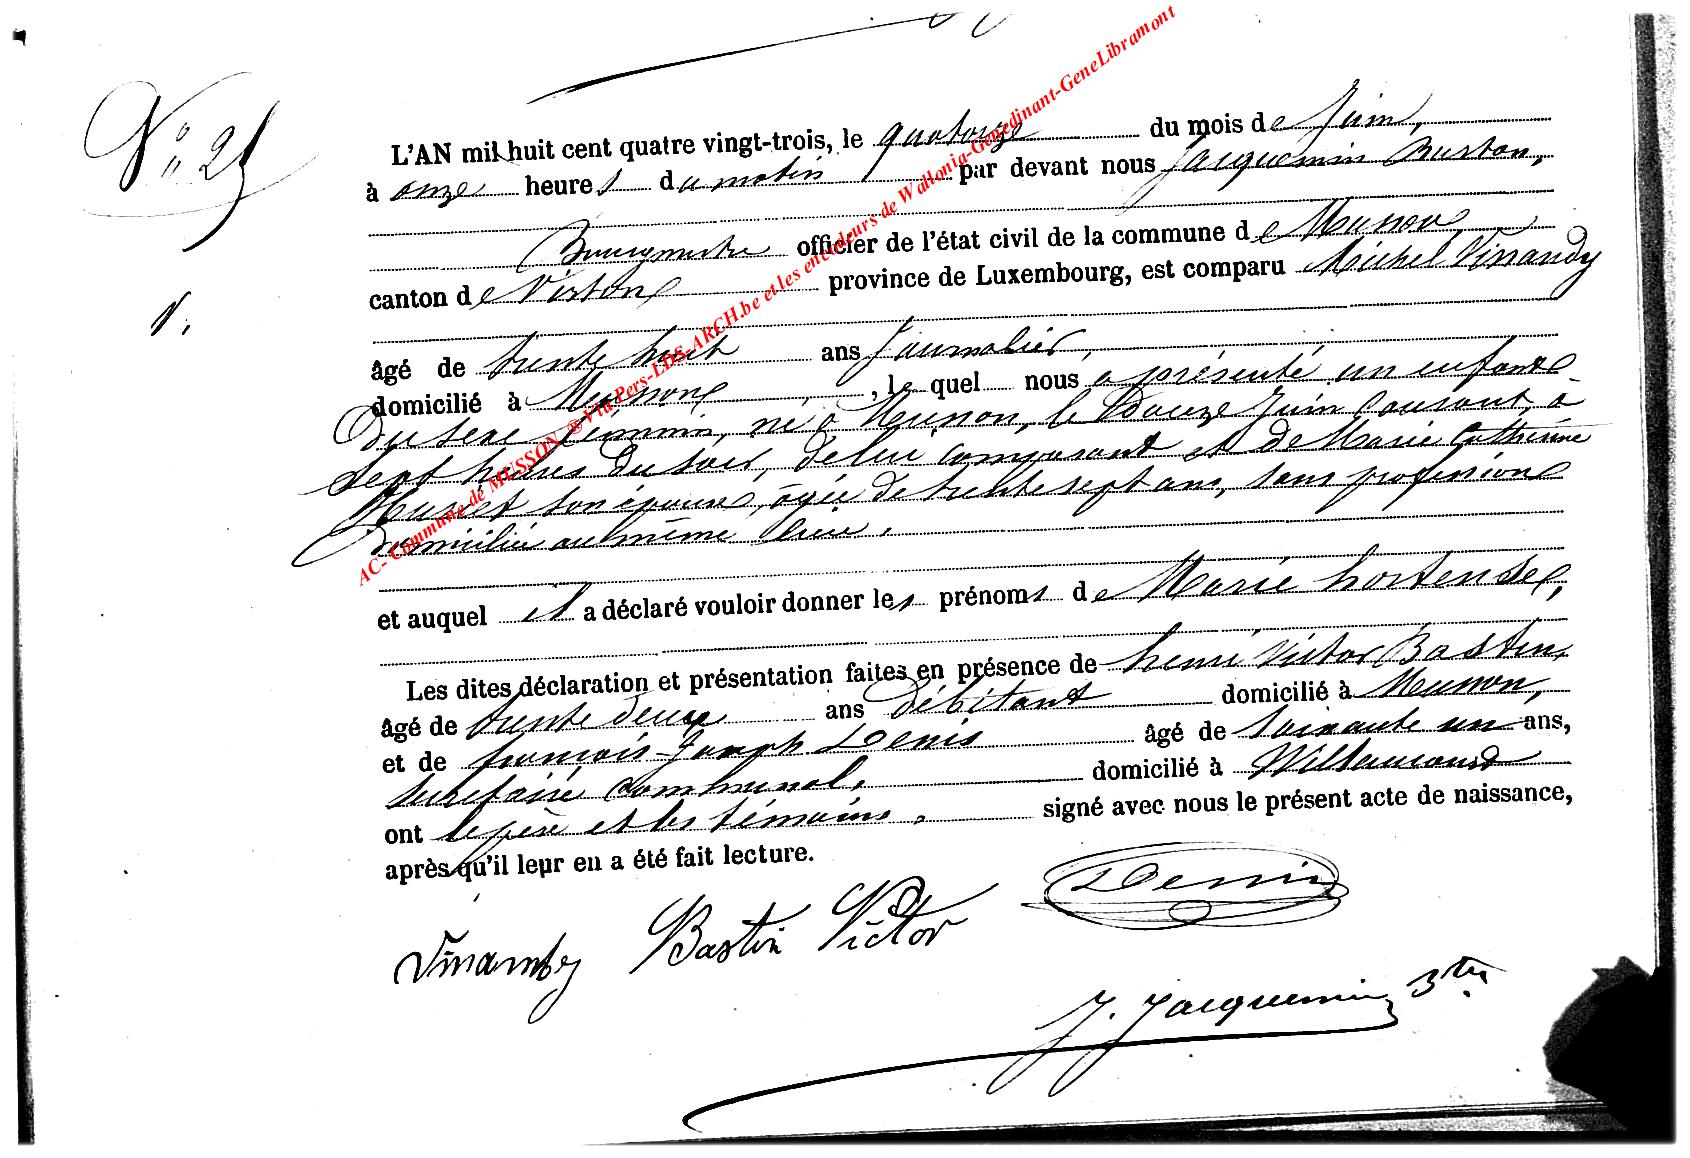 N° 25
V.
L'AN mil huit cent quatre vingt-trois, le quatorze du mois de Juin,
à onze heures du matin par devant nous Jacquemin
Bourgmestre officier de l'état civil de la commune de Musson,
canton de Virton province de Luxembourg, est comparu Michel Vinandy
âgé de trente huit ans Journalier,
domicilié à Musson, lequel nous a présenté un enfant
du sexe féminin, né à Musson, le Douze Juin Courant, à
sept heures du soir, de lui comparant et de Marie Catherine
son épouse, agée de trente sept ans, sans profession
domiciliée au même lieu.
et auquel il a déclaré vouloir donner les prénoms de Marie hortense,
Les dites déclaration et présentation faites en présence de henri Victor Bastin,
âgé de trente deux ans débitant domicilié à Musson,
et de françois Joseph Denis âgé de soixante un ans,
secrétaire communal, domicilié à Willancourt
ont le père et les témoins. signé avec nous le présent acte de naissance,
après qu'il leur en a été fait lecture.
Denis
Vinandy Bastin Victor
J. Jacquemin
AC- Commune de MUSSON ® Via Pers-LDS-ARCH.be et les encodeurs de Wallonia-Genedinant-GeneLibramont